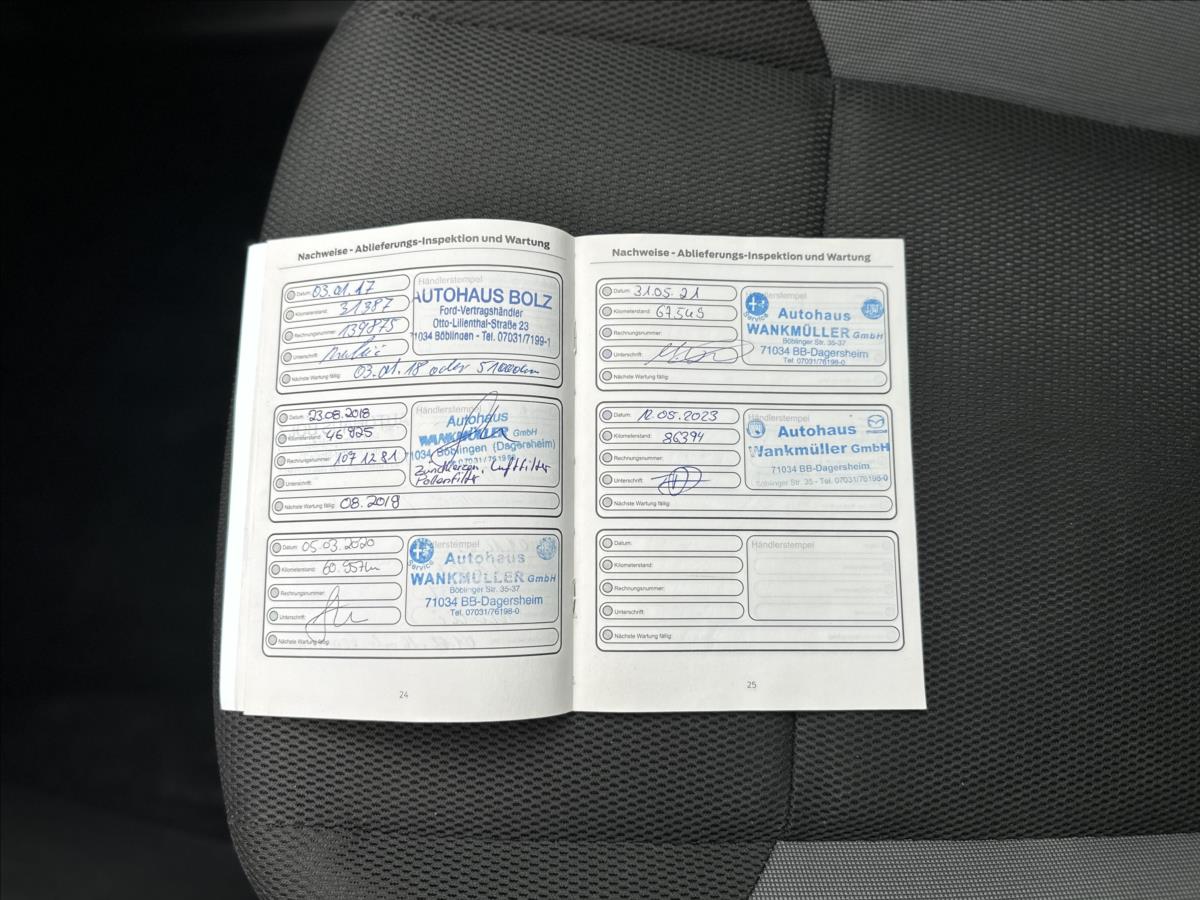 Nachweise - Ablieferungs-Inspektion und Wartung
Datum: 03.01.17
Kilometerstand: 31387
Rechnungsnummer: 139875
Unterschrift:
Nächste Wartung fällig: 03.01.18 oder 51000km
Händlerstempel
AUTOHAUS BOLZ
Ford-Vertragshändler
Otto-Lilienthal-Straße 23
71034 Böblingen - Tel. 07031/7199-1
Datum: 23.08.2018
Kilometerstand: 46925
Rechnungsnummer: 1071281
Unterschrift:
Nächste Wartung fällig: 08.2019
Händlerstempel
Autohaus
WANKMÜLLER GmbH
71034 Böblingen (Dagersheim)
Zündkerzen, Luftfilter
Pollenfilter
Datum: 05.03.2020
Kilometerstand: 60.957km
Rechnungsnummer:
Unterschrift:
Nächste Wartung fällig:
Händlerstempel
Service
Autohaus
WANKMÜLLER GmbH
Böblinger Str. 35-37
71034 BB-Dagersheim
Tel. 07031/76198-0
24
Nachweise - Ablieferungs-Inspektion und Wartung
Datum: 31.05.21
Kilometerstand: 67.549
Rechnungsnummer:
Unterschrift:
Nächste Wartung fällig:
Händlerstempel
Service
Autohaus
WANKMÜLLER GmbH
Böblinger Str. 35-37
71034 BB-Dagersheim
Tel. 07031/76198-0
Datum: 12.05.2023
Kilometerstand: 86394
Rechnungsnummer:
Unterschrift:
Nächste Wartung fällig:
Händlerstempel
Autohaus
Wankmüller GmbH
71034 BB-Dagersheim
Böblinger Str. 35 - Tel. 07031/76198-0
Datum:
Kilometerstand:
Rechnungsnummer:
Unterschrift:
Nächste Wartung fällig:
Händlerstempel
25